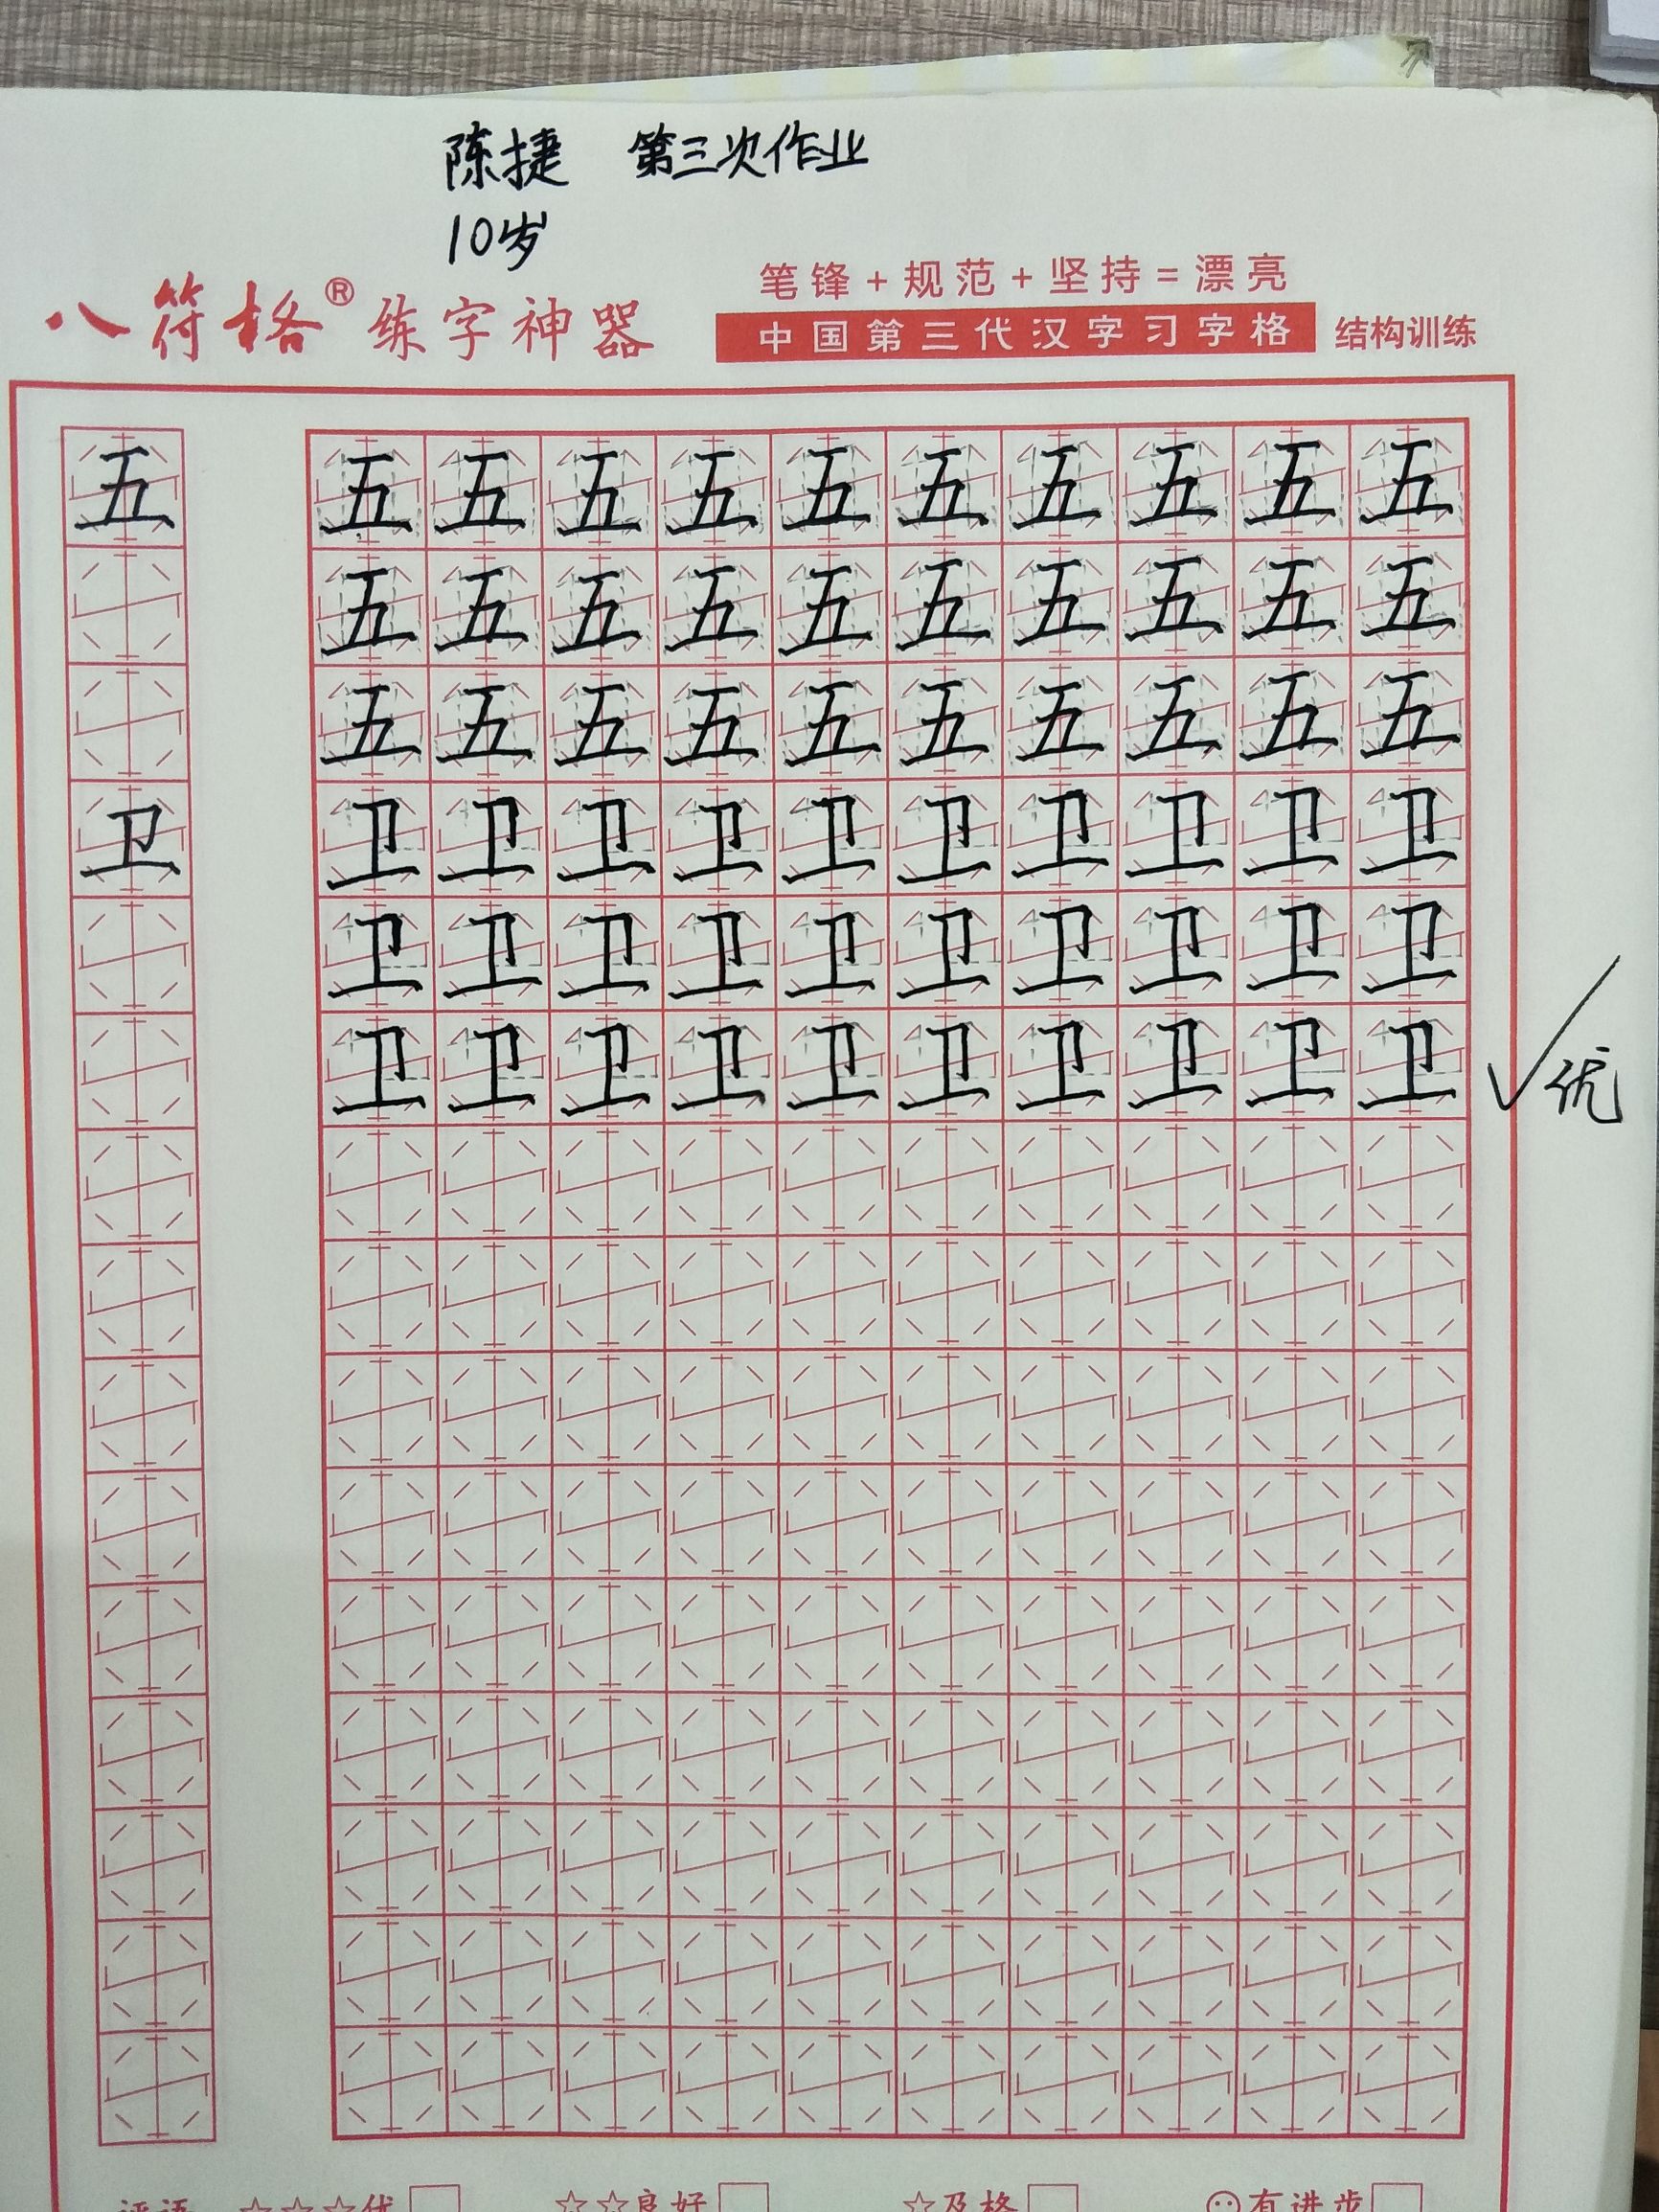 陈捷 第三次作业
10岁
八符格® 练字神器
笔锋+规范+坚持=漂亮
中国第三代汉字习字格 结构训练
五 五五五五五五五五五五
五五五五五五五五五五
五五五五五五五五五五
卫 卫卫卫卫卫卫卫卫卫卫
卫卫卫卫卫卫卫卫卫卫
卫卫卫卫卫卫卫卫卫卫
√优
评语 ☆☆☆优 ☆☆良好 ☆及格 有进步